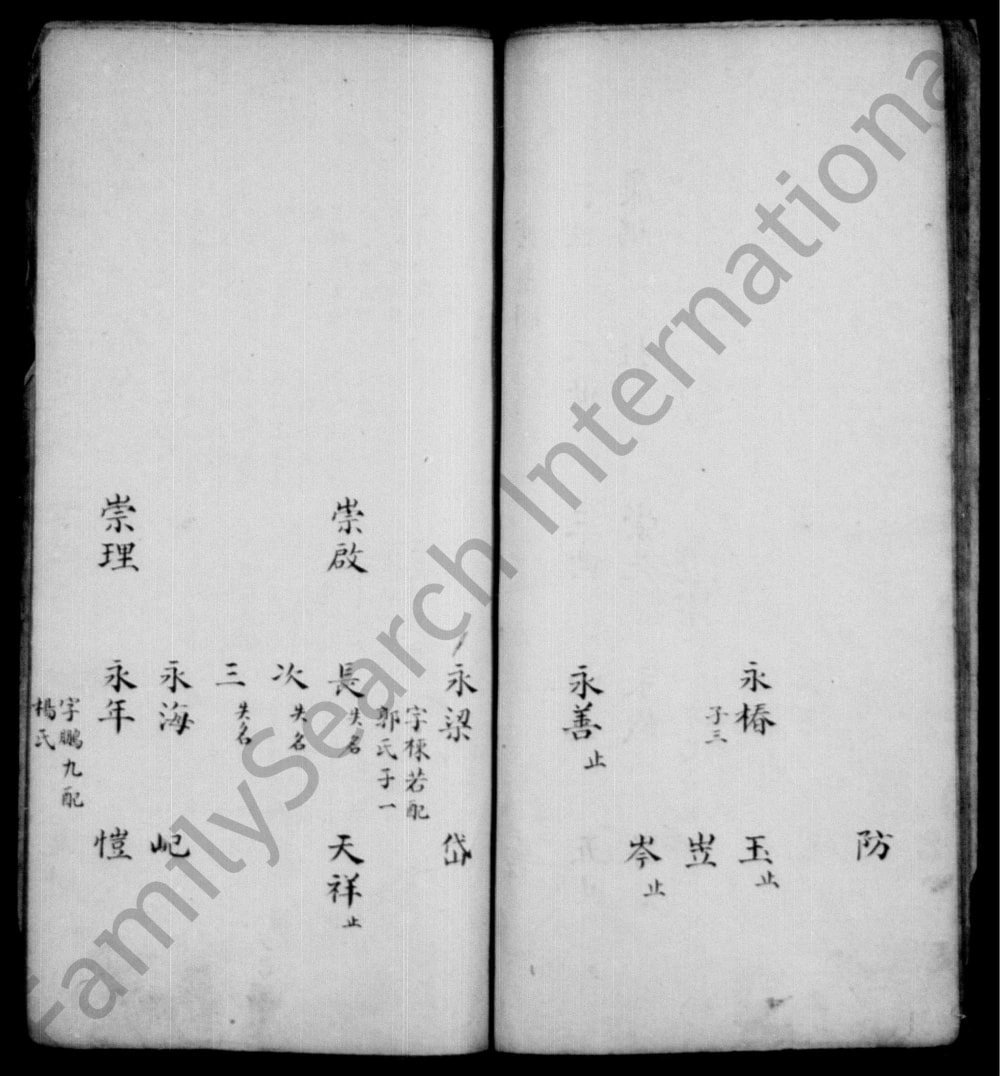 防
永椿
子三
玉止
岦
岑止
永善止
永梁
字棟若配
郭氏子一
岱
崇啟
長失名
天祥止
次失名
三失名
永海
屺
崇理
永年
字鵬九配
楊氏
愷
FamilySearch International